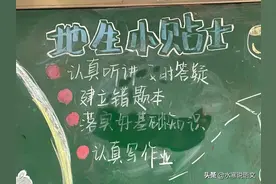 地生小贴士
认真听讲 及时答疑
建立错题本
落实好基础知识
认真写作业
头条@水寒说语文